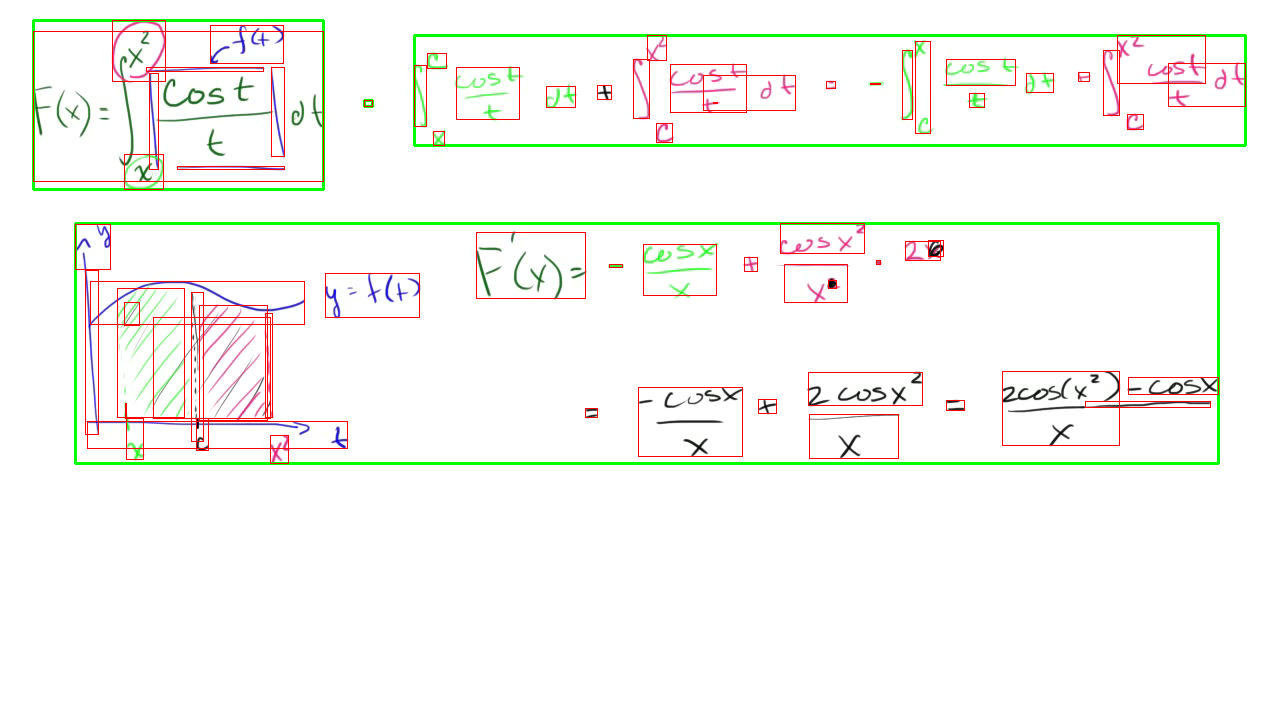 F(x) = ∫_x^{x²} [cos t / t] dt = ∫_x^c cos t / t dt + ∫_c^{x²} cos t / t dt = - ∫_c^x cos t / t dt + ∫_c^{x²} cos t / t dt
f(t)
y
y = f(t)
x c x² t
F'(x) = - cos x / x + cos x² / x² · 2x
= -cos x / x + 2 cos x² / x = 2cos(x²) - cos x / x